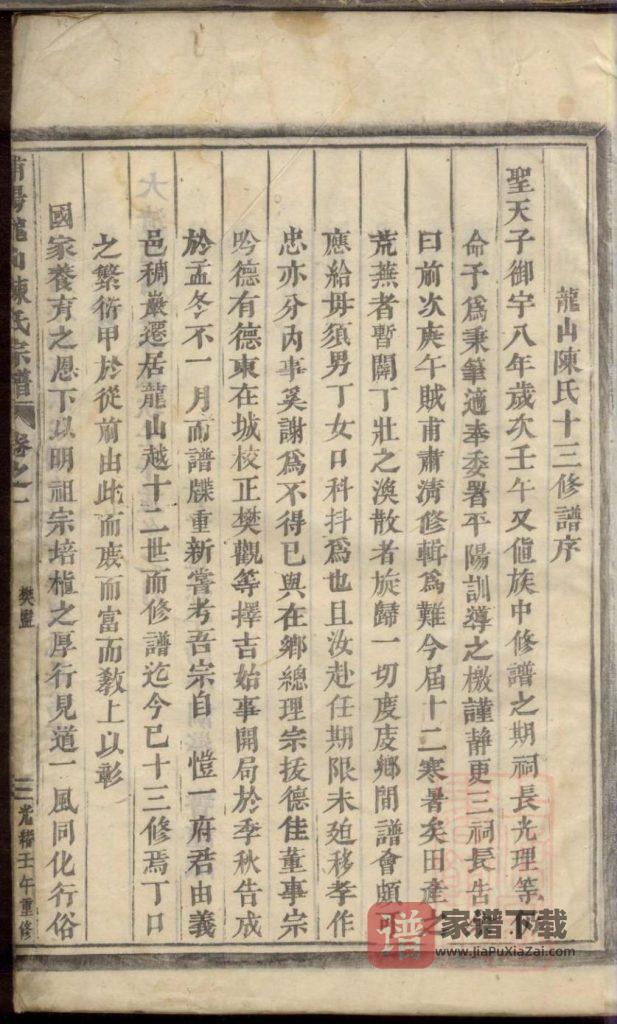 龍山陳氏十三修譜序
聖天子御宇八年歲次壬午又值族中修譜之期祠長光理等
命予爲秉筆適奉委署平陽訓導之檄謹靜更三祠長告
曰前次庚午賊甫肅清修輯爲難今屆十二寒暑矣田產之
荒蕪者暫闢丁壯之渙散者旋歸一切度度鄉間譜會頗可
應給毋須男丁女口科抖爲也且汝赴任期限未廹移孝作
忠亦分內事奚謝爲不得已與在鄉總理宗技德佳董事宗
吟德有德東在城校正樊觀等擇吉始事開局於季秋告成
於孟冬不一月而譜牒重新嘗考吾宗自愷一府君由義
邑稠巖遷居龍山越十二世而修譜迄今已十三修焉丁口
之繁衍甲於從前由此而庶而富而教上以彰
國家養育之恩下以明祖宗培植之厚行見道一風同化行俗
甫陽龍山陳氏宗譜 卷之一 樊盥 三 光緒壬午重修
譜 家谱下载
www.JiaPuXiaZai.com